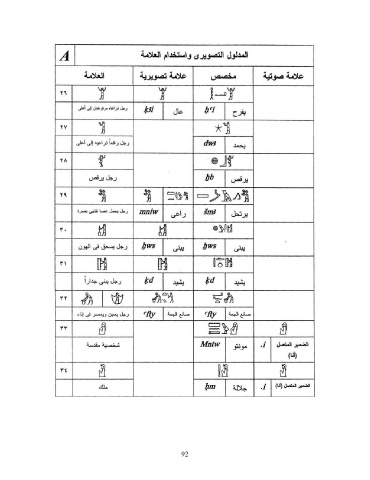 A المدلول التصويرى واستخدام العلامة
العلامة علامة تصويرية مخصص علامة صوتية
٢٦
رجل ذراعاه مرفوعتان إلى أعلى ḳȝi عال ḥꜥi يفرح
٢٧
رجل راكعاً ذراعيه إلى أعلى dwȝ يحمد
٢٨
رجل يرقص ḫb يرقص
٢٩
رجل يحمل عصا تنتهي بصرة mniw راعى šmȝ يرتحل
٣٠
رجل يسحق فى الهون ḫws يبنى ḫws يبنى
٣١
رجل يبنى جداراً ḳd يشيد ḳd يشيد
٣٢
رجل يعجن ويعصر فى إناء ꜥfty صانع الجعة ꜥfty صانع الجعة
٣٣
شخصية مقدسة Mntw مونتو .i الضمير المتصل (أنا)
٣٤
ملك ḥm جلالة .i الضمير المتصل (أنا)
92